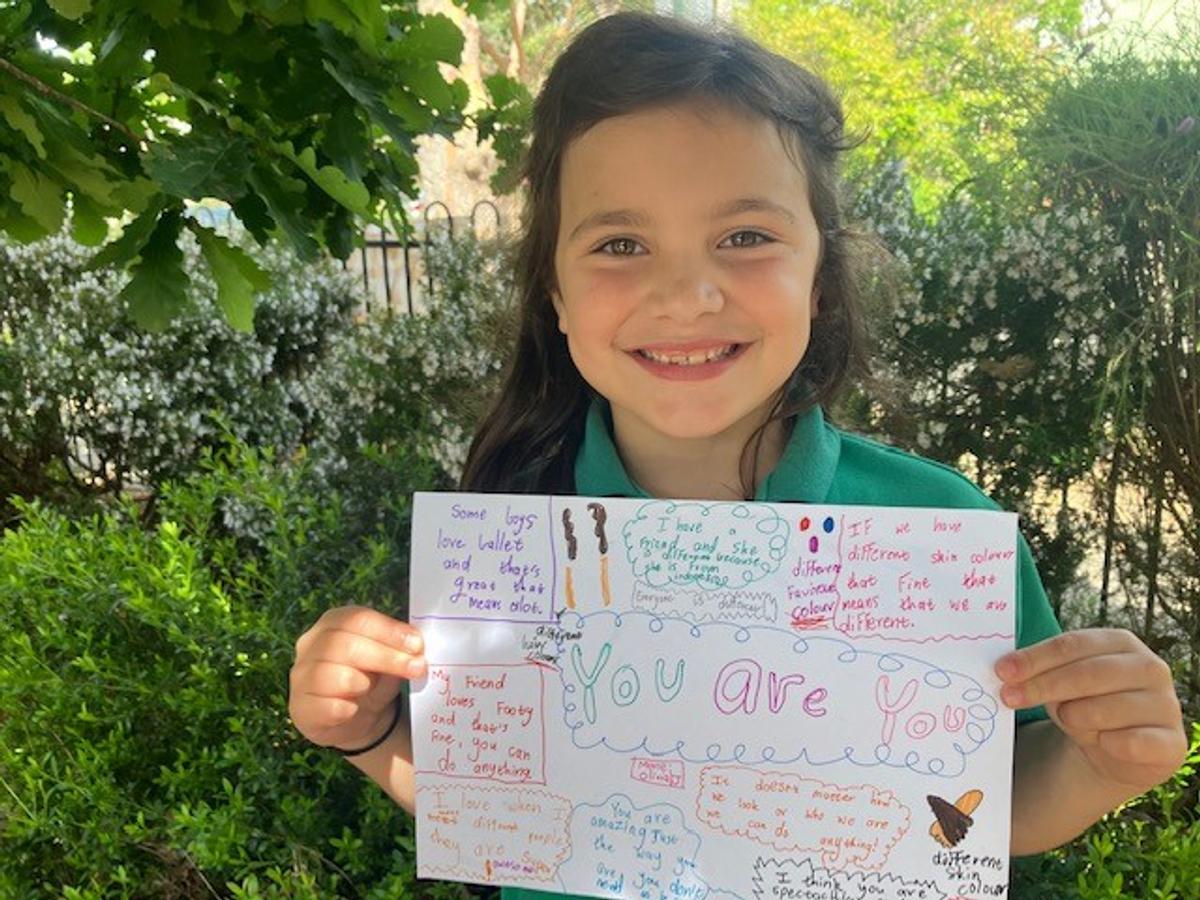 Some boys
love ballet
and thats
great that
means alot.
I have a
friend and she
is different because
she is from
Everyone is different
different
Favourite
colour
IF we have
different skin colours
that Fine that
means that we are
different.
different
hair
colour
You are You
My Friend
loves Footy
and that's
fine, you can
do anything
Name:
Olivia
I love when I
meet different people
they are super
awesome
You are
amazing Just
the way you
are you don't
need
It doesn't matter how
we look or who we are
we can do
anything!
different
skin
colour
I think you are